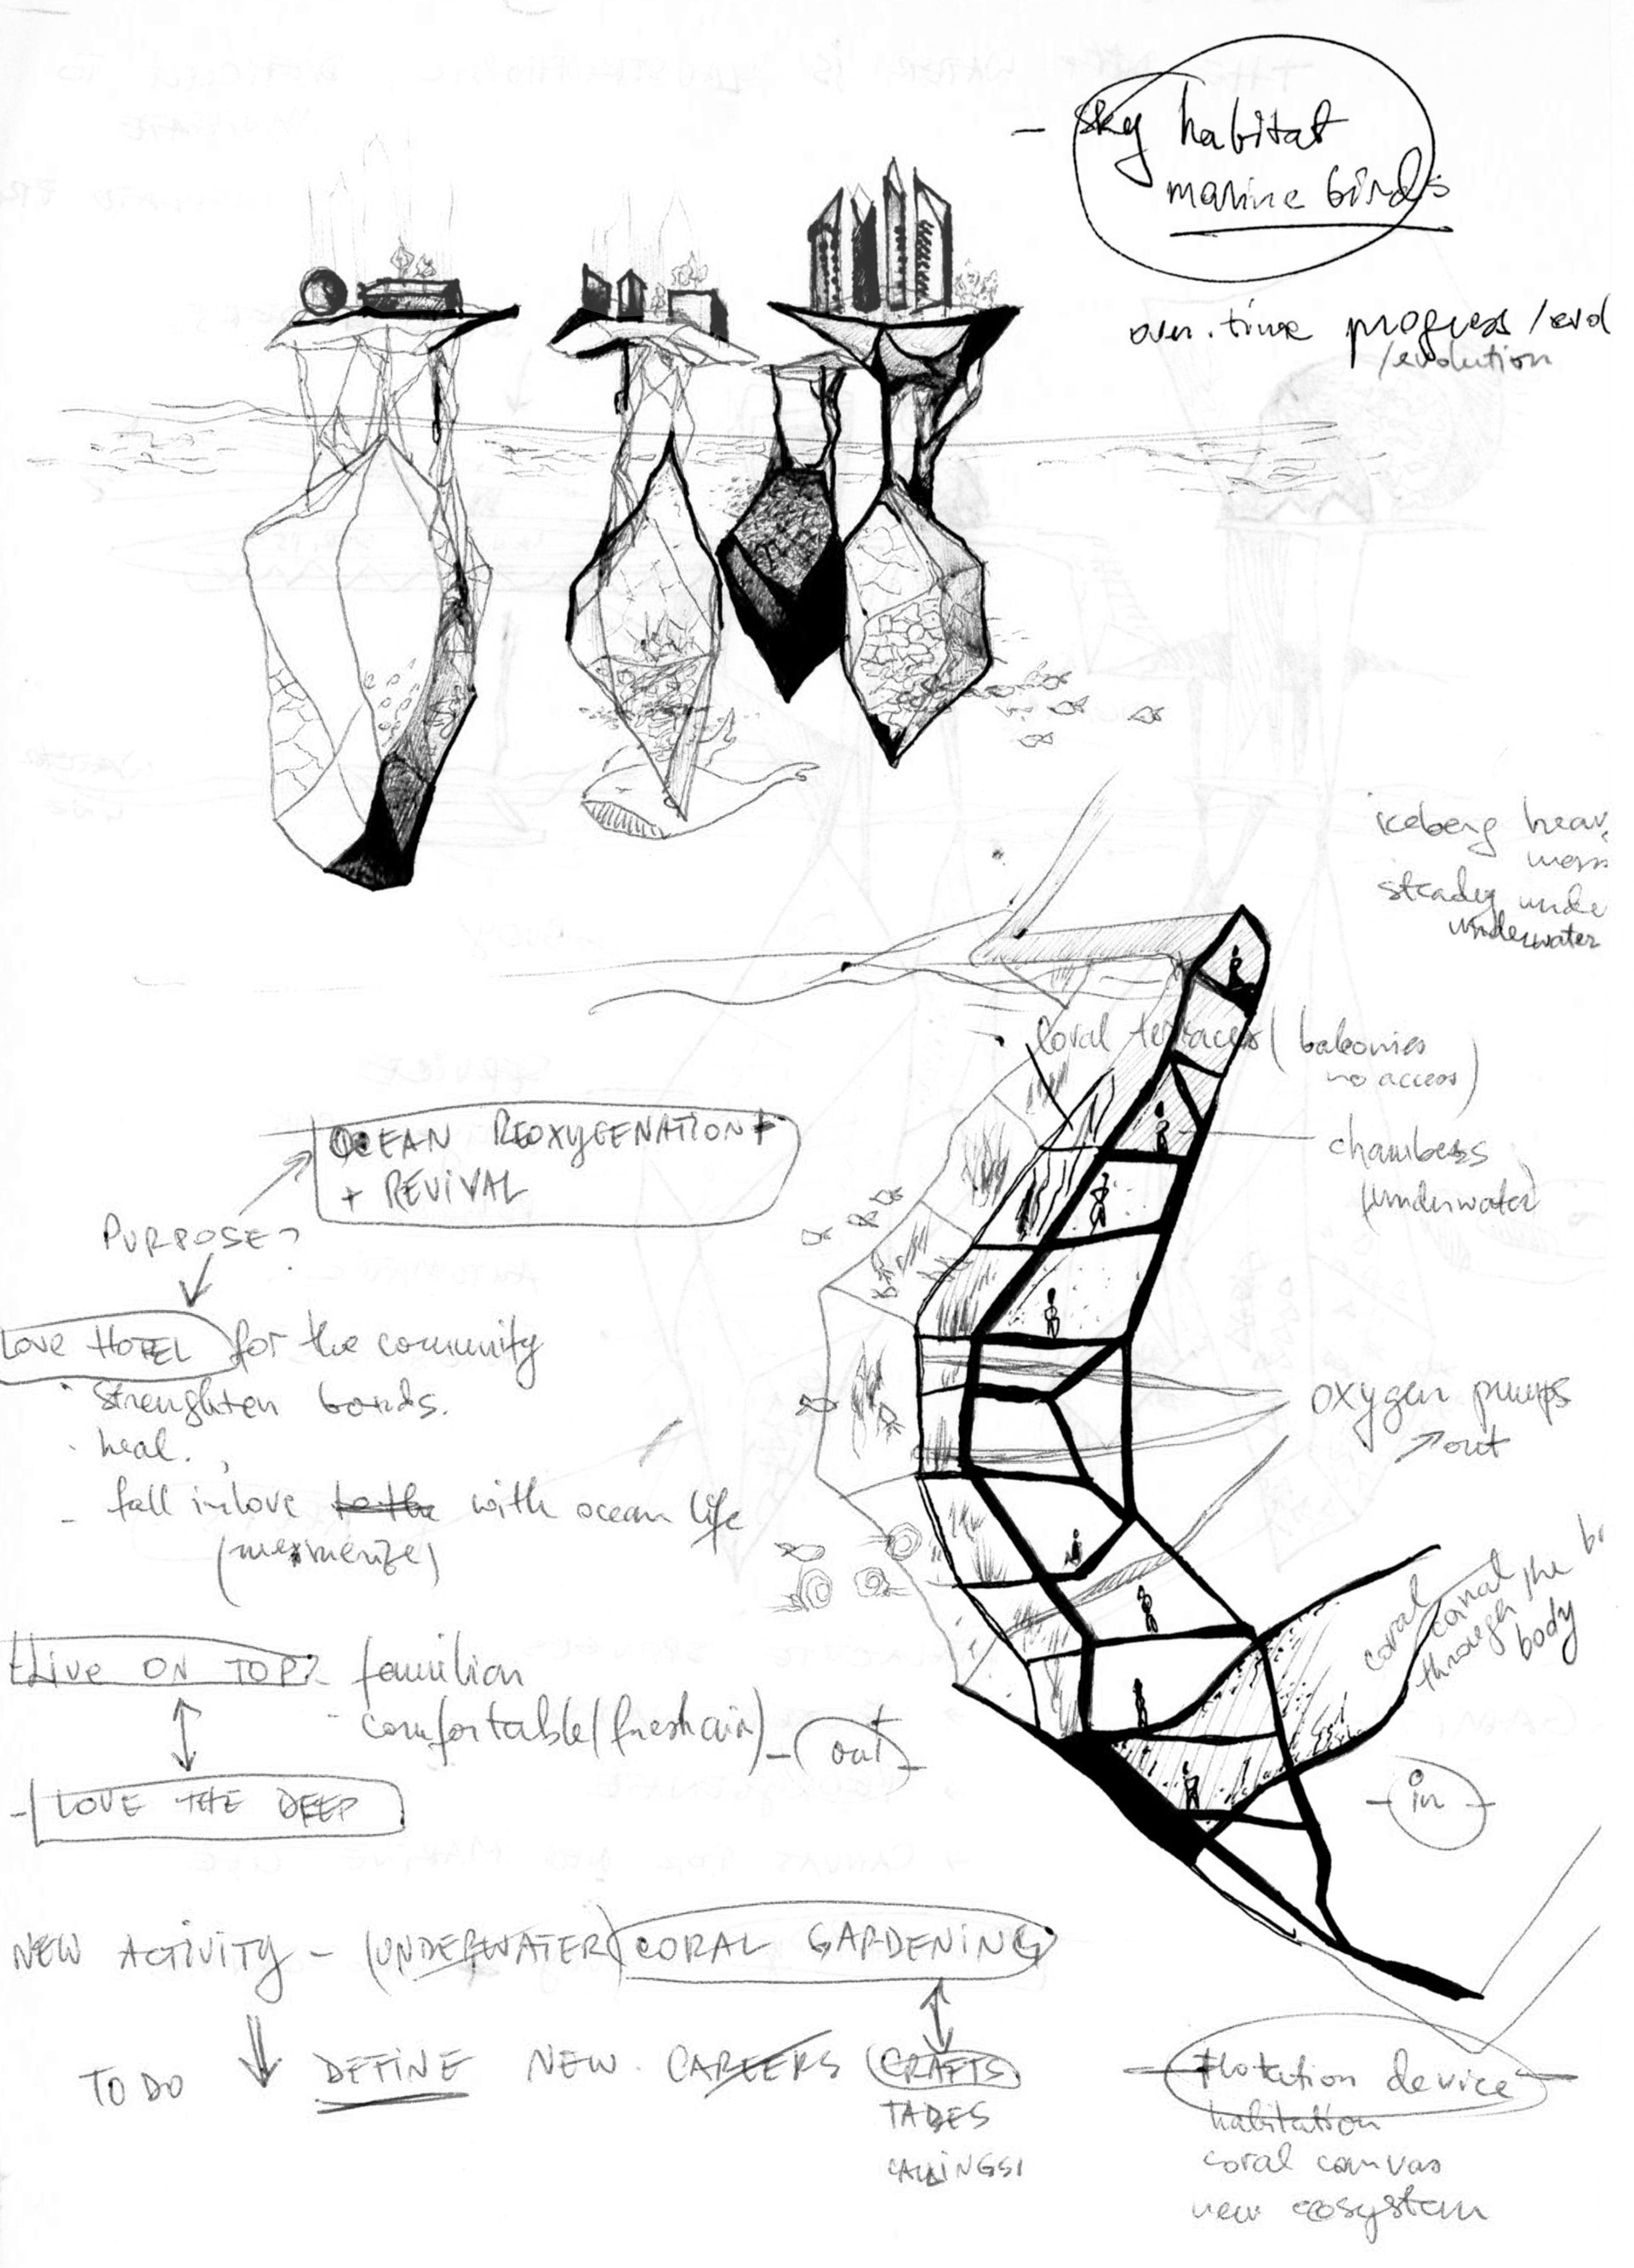 - sky habitat
marine birds
over. time progress / evol
/evolution
iceberg heav
mass
steady unde
underwater
Coral terraces ( balconies
no access )
chambers
(underwater)
OCEAN REOXYGENATION +
+ REVIVAL
PURPOSE?
LOVE HOTEL for the comunity
· strenghten bonds.
· heal.
- fall in love to the with ocean life
(mesmerize)
oxygen pumps
out
coral canal
through the bo
body
Live ON TOP - familiar
- comfortable (fresh air) - out -
- LOVE THE DEEP
- in -
NEW ACTIVITY - (UNDERWATER) CORAL GARDENING
TO DO DEFINE NEW CAREERS CRAFTS
CALLINGS
flotation device
habitation
coral canvas
new ecosystem